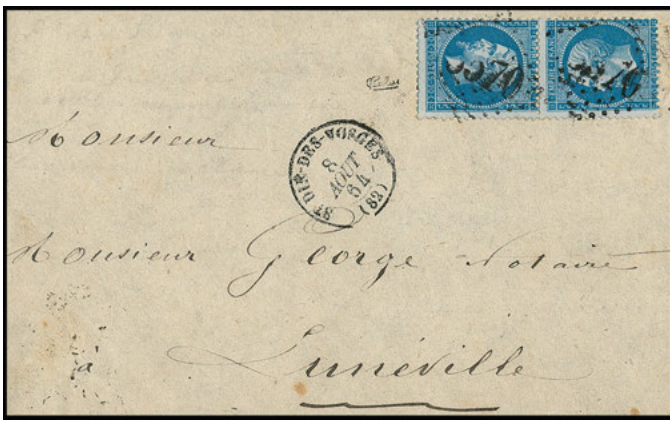 3570
Monsieur
ST DIE-DES-VOSGES
8
AOUT
64
(82)
Monsieur George Notaire
à
Lunéville